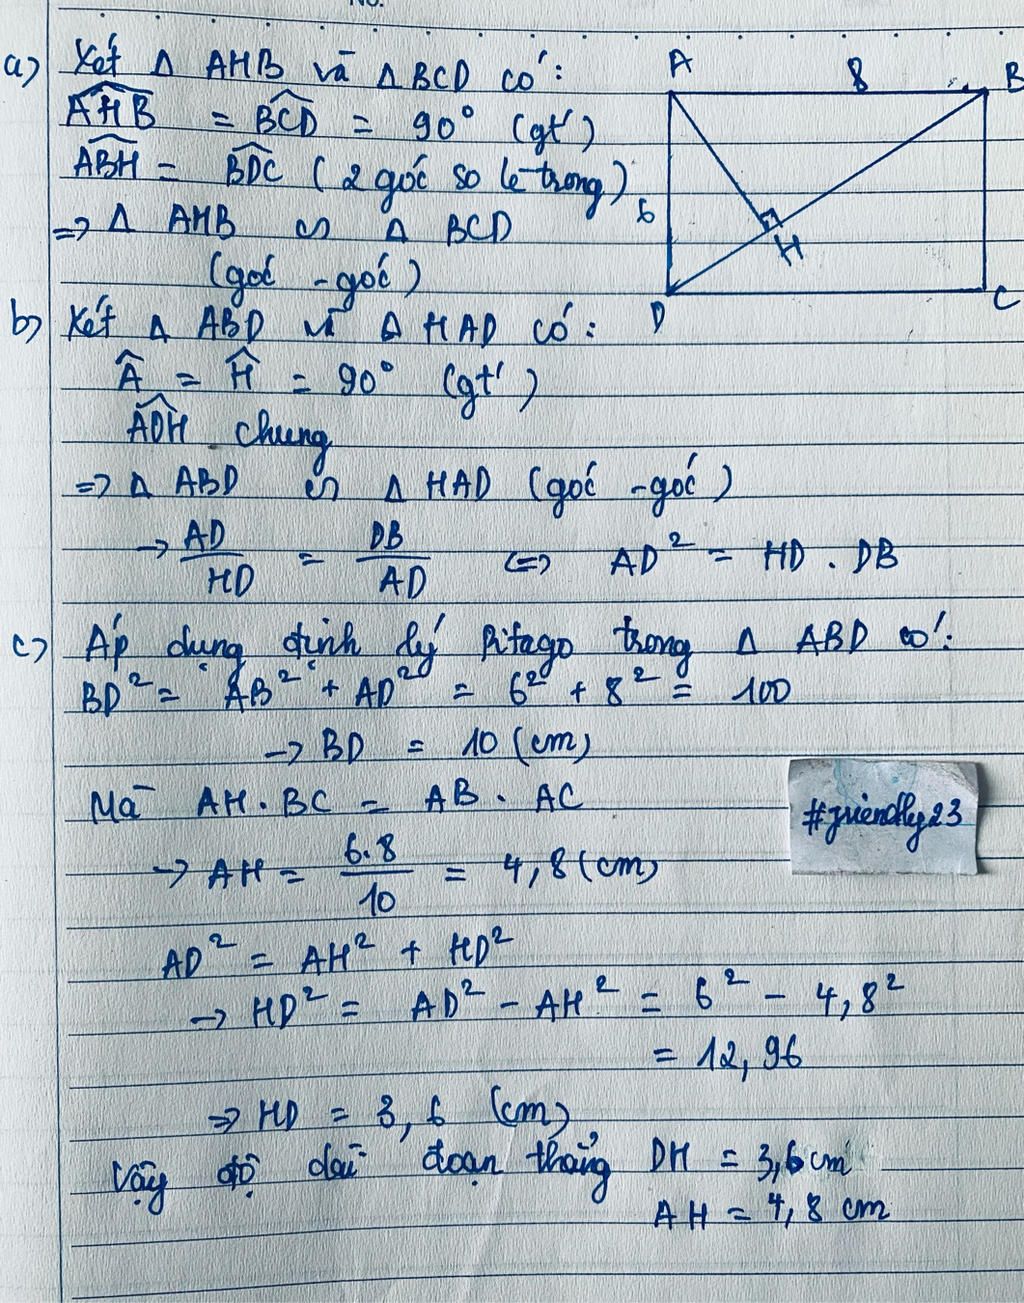 No.
a) Xét Δ AHB và Δ BCD có:
AHB = BCD = 90° (gt)
ABH = BDC (2 góc so le trong)
=> Δ AHB ∽ Δ BCD
(góc - góc)
A 8 B
6
H
D C
b) Xét Δ ABD và Δ HAD có:
Â = Ĥ = 90° (gt)
ADH chung
=> Δ ABD ∽ Δ HAD (góc - góc)
→ AD/HD = DB/AD <=> AD² = HD . DB
c) Áp dụng định lý Pitago trong Δ ABD có:
BD² = AB² + AD² = 6² + 8² = 100
→ BD = 10 (cm)
Mà AH . BC = AB . AC
→ AH = 6.8/10 = 4,8 (cm)
#friendly23
AD² = AH² + HD²
→ HD² = AD² - AH² = 6² - 4,8²
= 12,96
=> HD = 3,6 (cm)
Vậy độ dài đoạn thẳng DH = 3,6 cm
AH = 4,8 cm